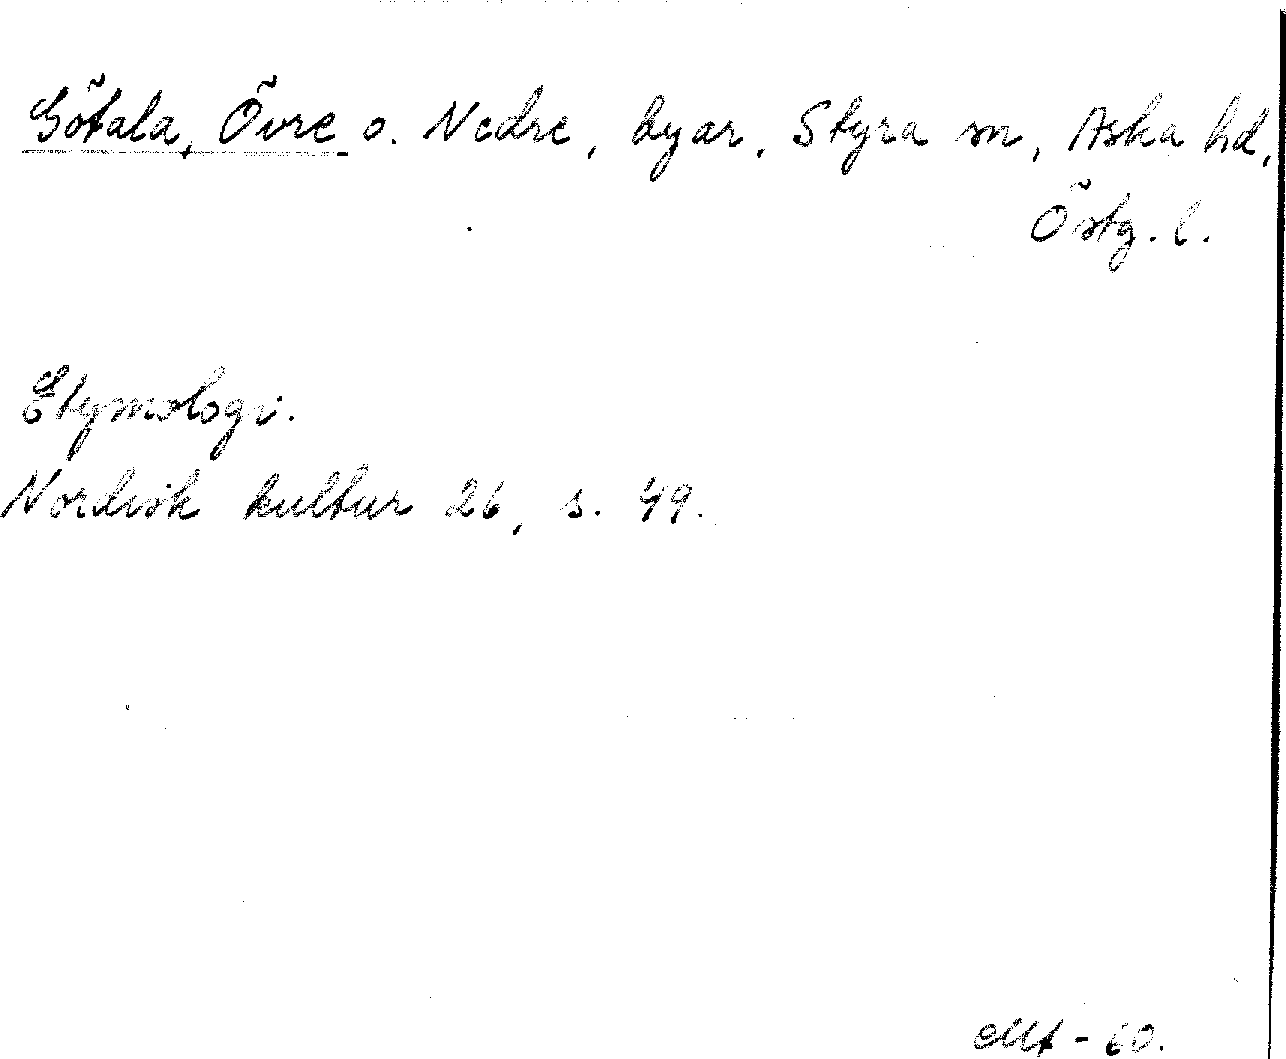 Götala, Övre o. Nedre, byar, Styra sn, Aska hd,
Östg. l.
Etymologi.
Nordisk kultur 26, s. 49.
- 60.